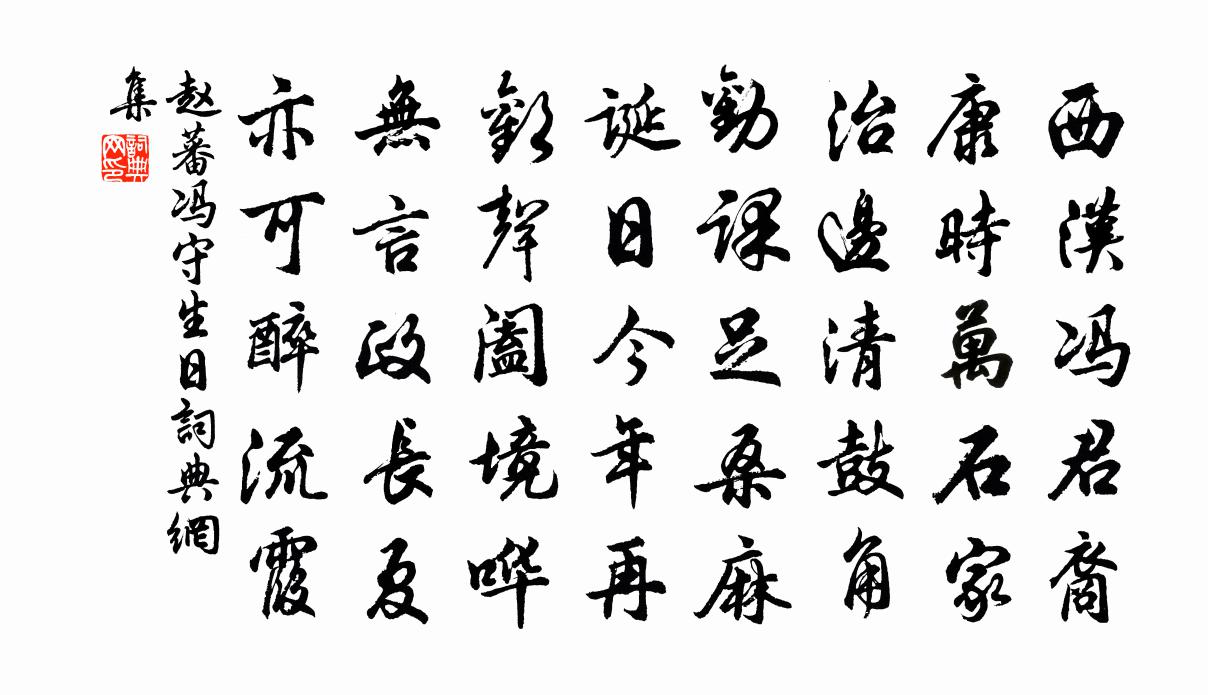 西漢冯君裔
康時萬石家
治邊清鼓角
勸課足桑麻
誕日今年再
歡聲闔境哗
無言政長夏
亦可醉流霞
赵蕃冯守生日詞典網
集
詞典网印